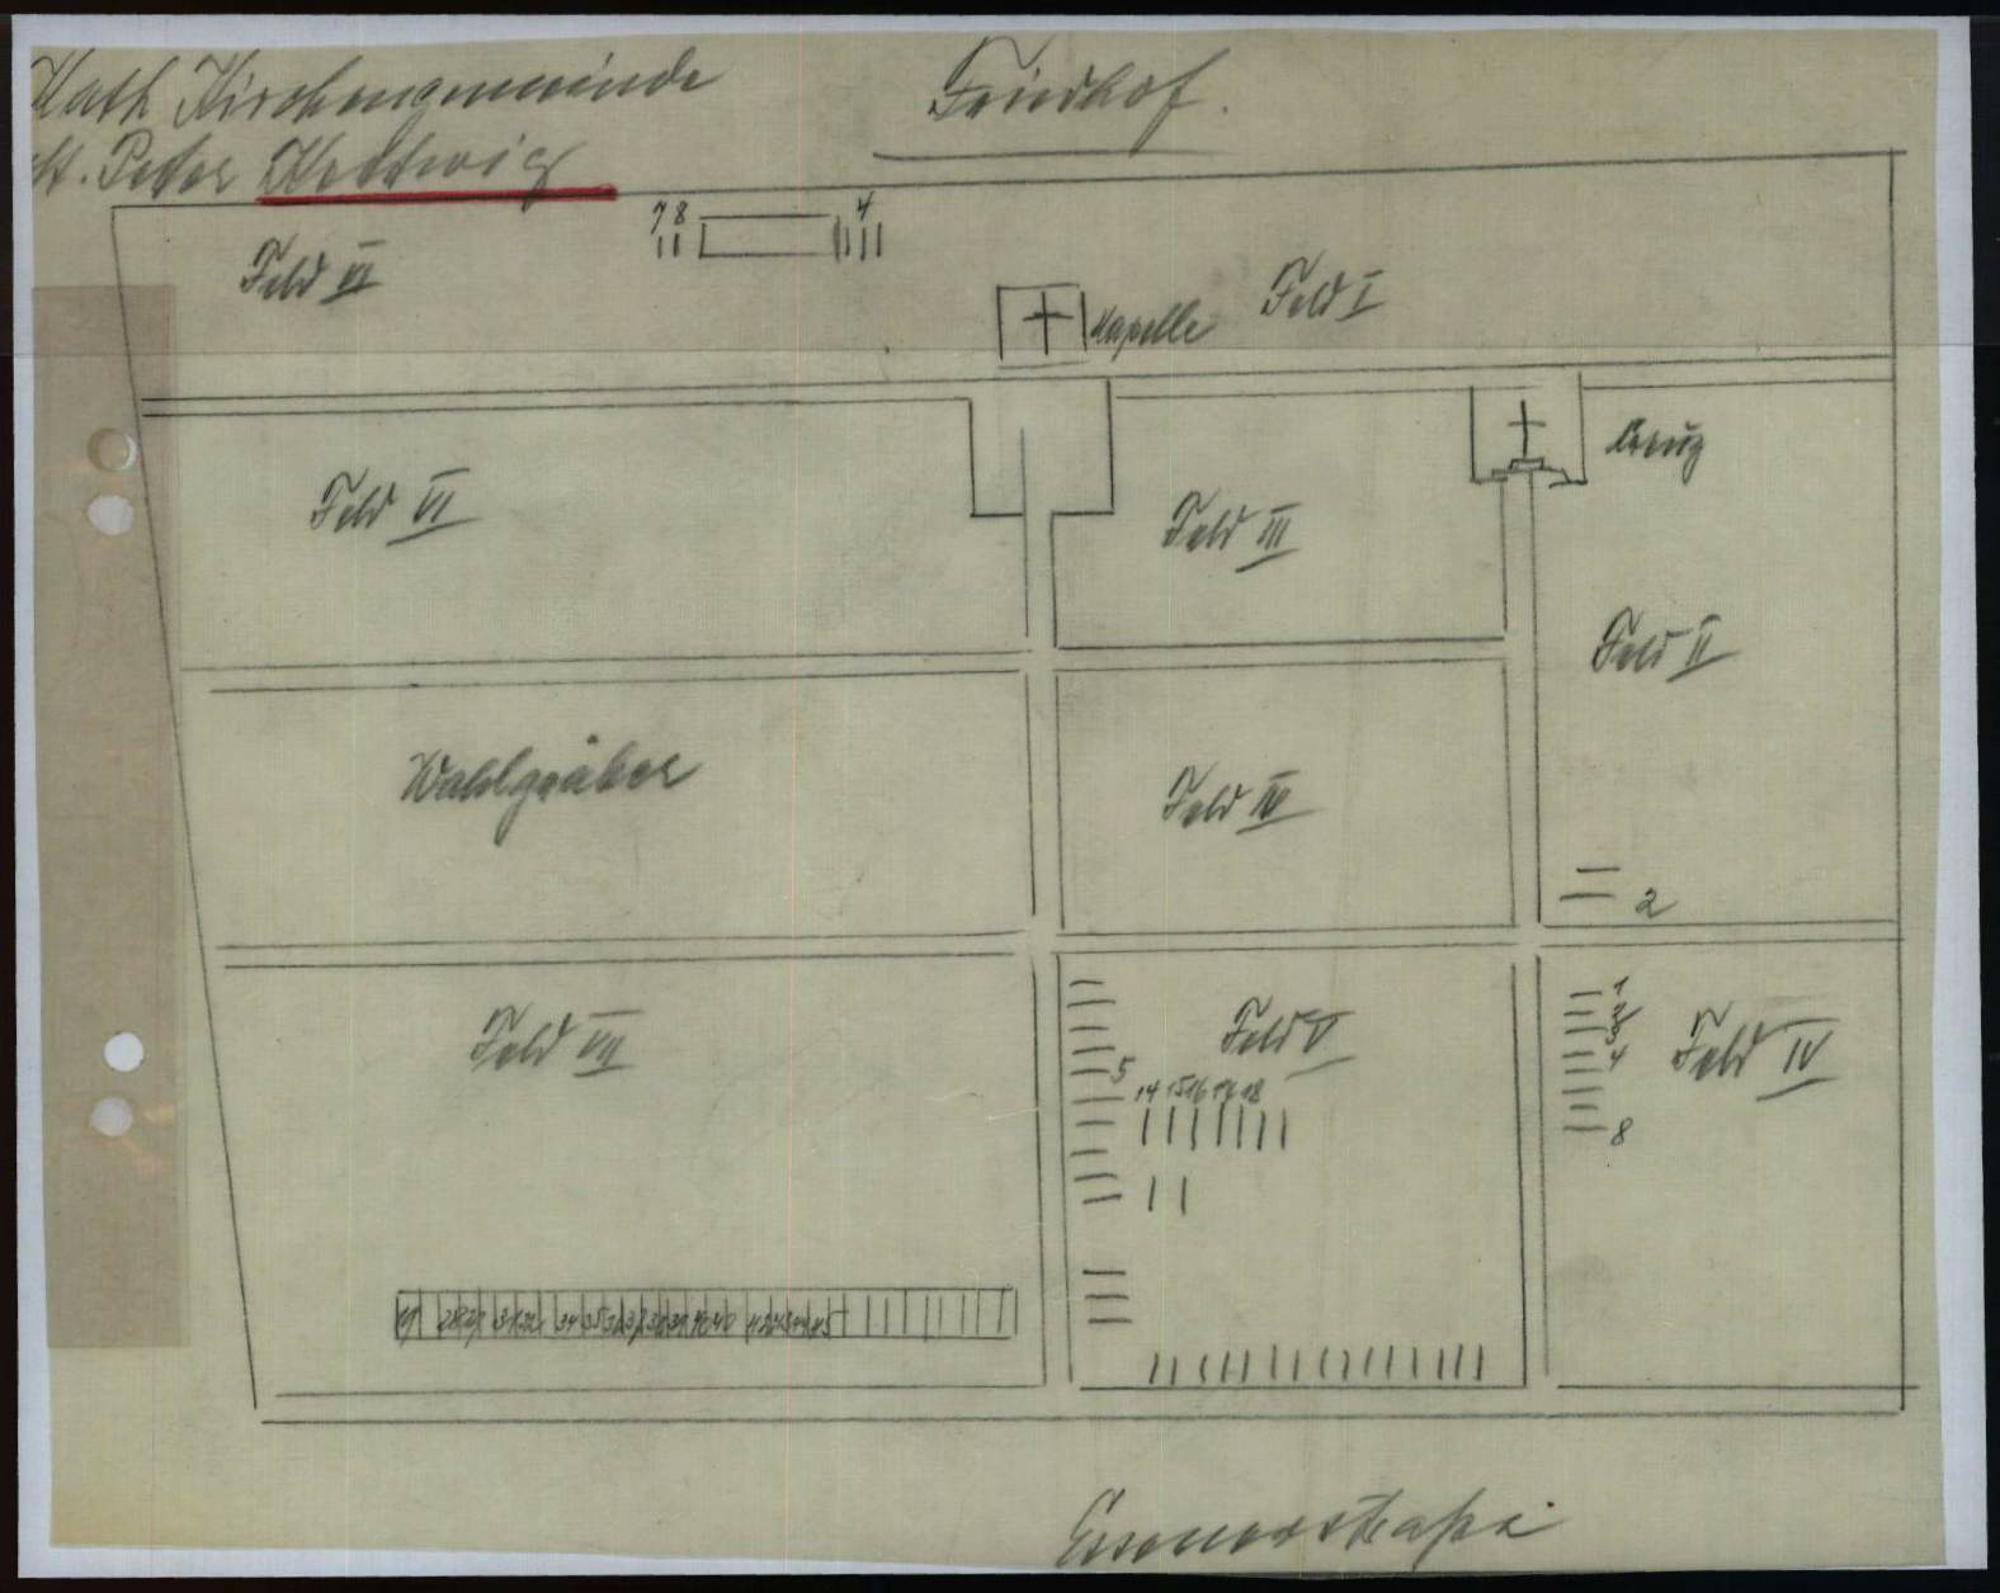 Kath Kirchengemeinde
St. Peter Kettwig
Friedhof.
7 8
4
Feld VI
Kapelle
Feld I
Feld VI
Feld III
Kreuz
Feld II
Wahlgräber
Feld IV
2
Feld VII
Feld V
5
14 15 16 17 18
1
2
3
4
8
Feld IV
Essenerstraße